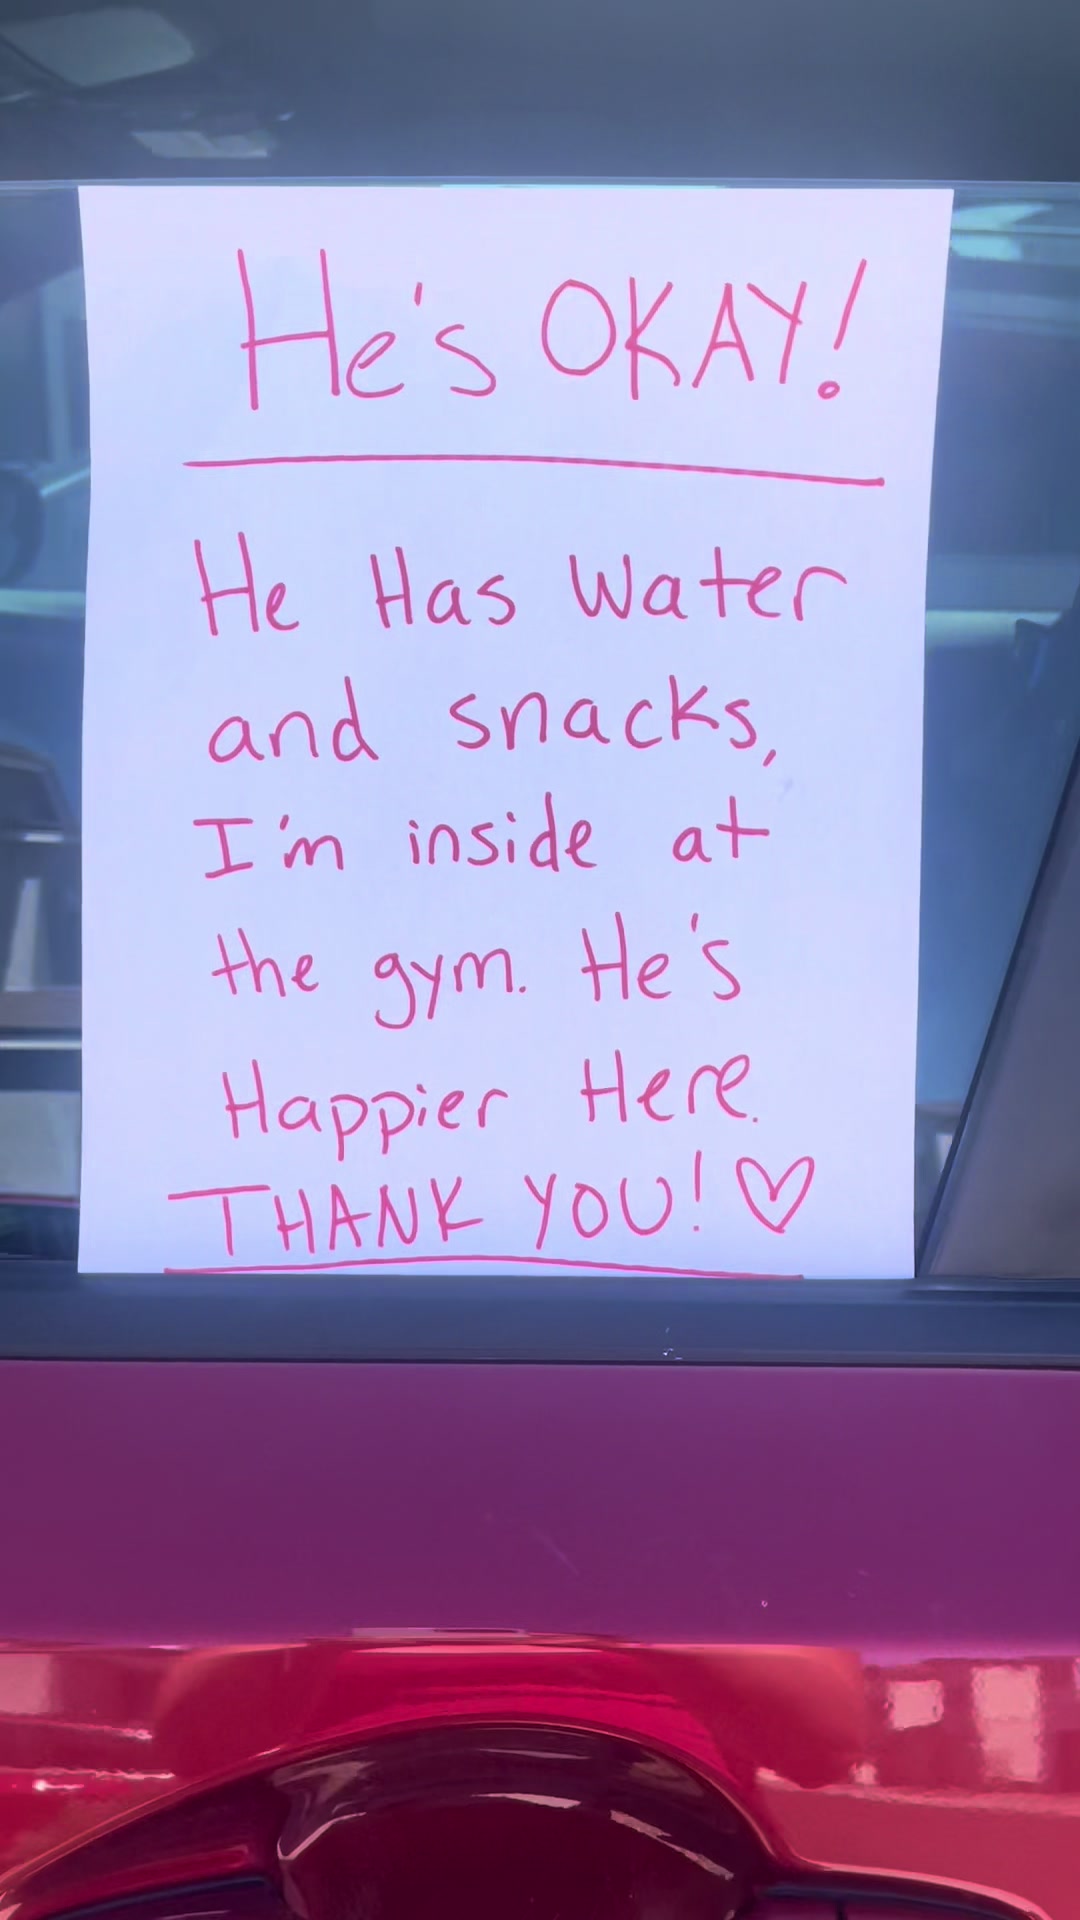 He's OKAY!
He Has Water
and snacks,
I'm inside at
the gym. He's
Happier Here.
THANK YOU! ♡